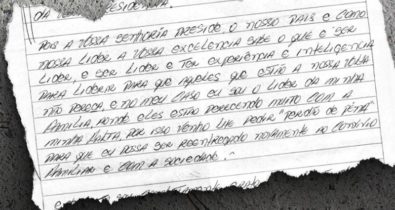 POIS A VOSSA SENHORIA PRESIDE O NOSSO PAIS E COMO
NOSSA LIDER A VOSSA EXCELENCIA SABE O QUE E SER
LIDER, E SER LIDER E TER EXPERIÊNCIA E INTELIGENCIA
PARA LIDERAR PARA QUE AQUELES QUE ESTÃO A NOSSA VOLTA
NÃO PEREÇA, E NO MEU CASO EU SOU O LIDER DA MINHA
FAMILIA, AONDE ELES ESTÃO PERECENDO MUITO COM A
MINHA FALTA, POR ISSO VENHO LHE PEDIR "PERDÃO DE PENA"
PARA QUE EU POSSA SER REINTEGRADO NOVAMENTE AO CONVIVIO
FAMILIAR E COM A SOCIEDADE.